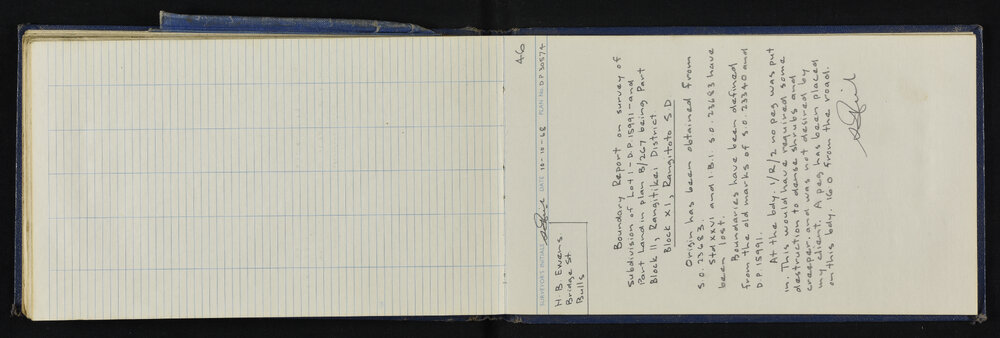 46
SURVEYOR'S INITIALS DATE 10-10-68 PLAN No. D.P. 30574
H B Ewens
Bridge St
Bulls
Boundary Report on survey of
subdivision of Lot 1 - D.P. 15991 - and
Part Land in plan B/267 being Part
Block 11, Rangitikei District
Block XI, Rangitoto S D
Origin has been obtained from
S.O. 23683.
Std XXVI and I B.I. S.O. 23683 have
been lost.
Boundaries have been defined
from the old marks of S.O. 23340 and
D.P. 15991.
At the bdy. 1/R/2 no peg was put
in. This would have required some
destruction to dense shrubs and
creeper and was not desired by
my client. A peg has been placed
on this bdy. 16.0 from the road.